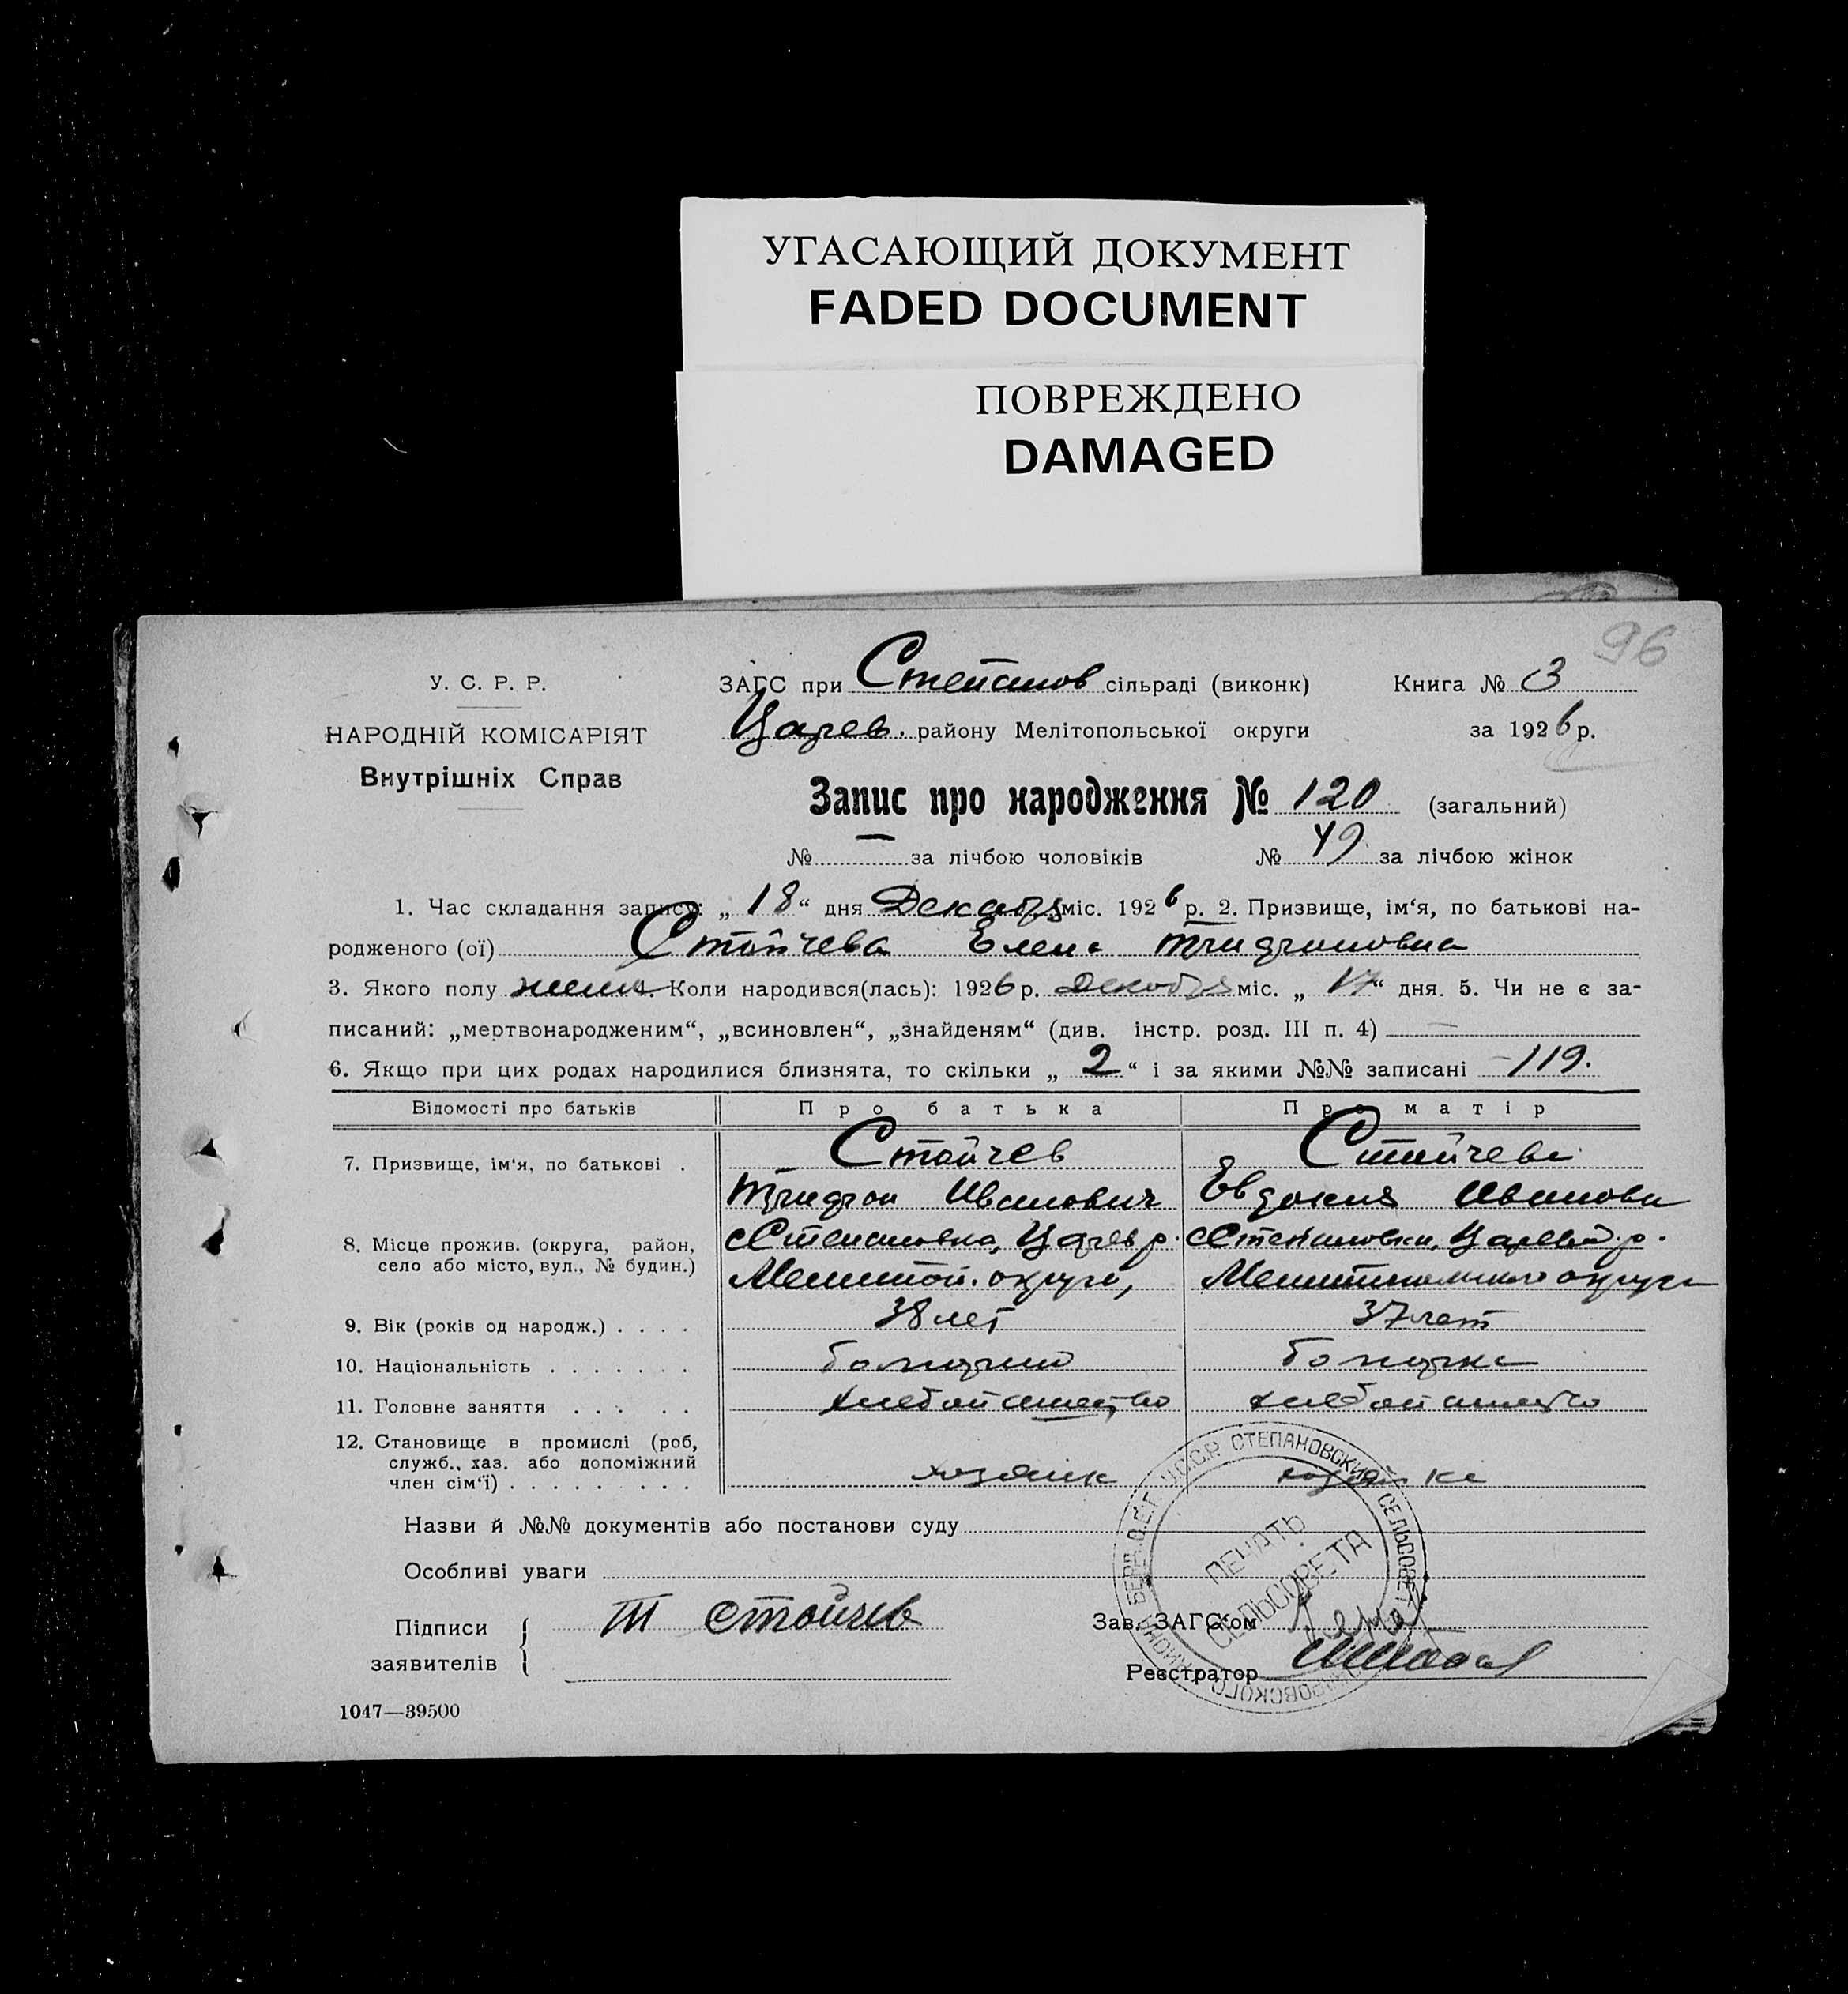 УГАСАЮЩИЙ ДОКУМЕНТ
FADED DOCUMENT
ПОВРЕЖДЕНО
DAMAGED
96
У. С. Р. Р.
НАРОДНІЙ КОМІСАРІЯТ
Внутрішніх Справ
ЗАГС при Степанов сільраді (виконк) Книга № 3
Царев. району Мелітопольської округи за 1926 р.
Запис про народження № 120 (загальний)
№ — за лічбою чоловіків № 49 за лічбою жінок
1. Час складання запису: „ 18 “ дня Декабря міс. 1926 р. 2. Призвище, ім‘я, по батькові на-
родженого (ої) Стойчева Елена Трифоновна
3. Якого полу женс 4. Коли народився(лась): 1926 р. Декабря міс. „ 17 “ дня. 5. Чи не є за-
писаний: „мертвонародженим“, „всиновлен“, „знайденям“ (див. інстр. розд. III п. 4) —
6. Якщо при цих родах народилися близнята, то скільки „ 2 “ і за якими №№ записані —119.
Відомості про батьків Про батька Про матір
7. Призвище, ім‘я, по батькові . Стойчев Стойчева
Трифон Иванович Евдокия Иванова
8. Місце прожив. (округа, район, сСтепановка, Царев р. сСтепановки, Царевой.р.
село або місто, вул., № будин.) Мелитоп. округи, округи
9. Вік (років од народж.) . . . . 38 лет 37 лет
10. Національність . . . . . . . болгарин болгарка
11. Головне заняття . . . . . хлебопашество хлебопашество
12. Становище в промислі (роб,
служб., хаз. або допоміжний
член сім‘ї) . . . . . . . . . хозяин хозяйка
Назви й №№ документів або постанови суду
Особливі уваги
Підписи заявителів Т Стойчев
Зав. ЗАГС‘ом
Реєстратор
У.С.С.Р. СТЕПАНОВСКИЙ СЕЛЬСОВЕТ
ПЕЧАТЬ
СЕЛЬСОВЕТА
1047—39500